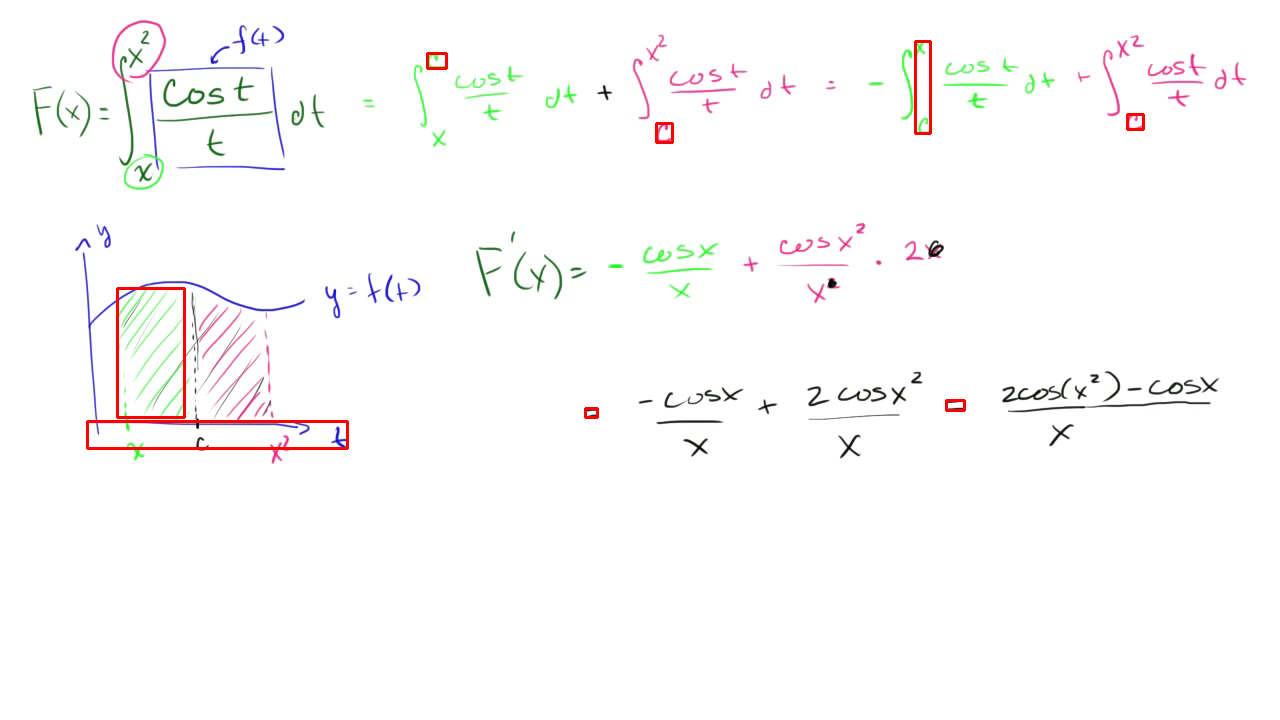 F(x) = ∫_x^{x^2} cos t / t dt = ∫_x^c cos t / t dt + ∫_c^{x^2} cos t / t dt = - ∫_c^x cos t / t dt + ∫_c^{x^2} cos t / t dt
f(t)
y
y = f(t)
x c x^2 t
F'(x) = - cos x / x + cos x^2 / x^2 · 2x
= -cos x / x + 2 cos x^2 / x = 2cos(x^2) - cos x / x